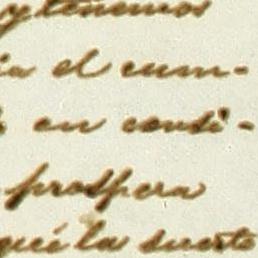 y tenemos
el cum-
en condi-
prospera
qué la suerte